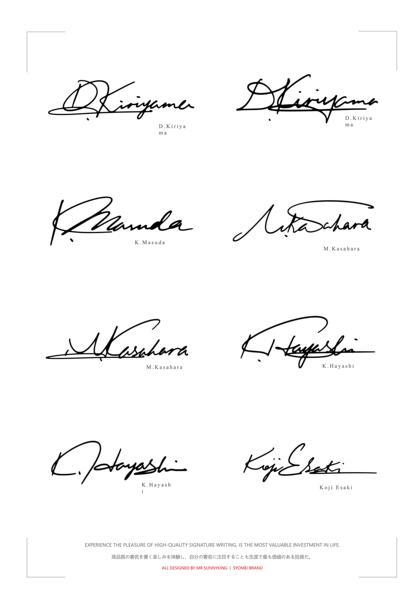 D.Kiriyama
D.Kiriya
ma
D.Kiriyama
D.Kiriya
ma
K.Masuda
K.Masuda
M.Kasahara
M.Kasahara
M.Kasahara
M.Kasahara
K.Hayashi
K.Hayashi
K.Hayashi
K.Hayash
i
Koji Esaki
Koji Esaki
EXPERIENCE THE PLEASURE OF HIGH-QUALITY SIGNATURE WRITING, IS THE MOST VALUABLE INVESTMENT IN LIFE.
高品質の署名を書く楽しみを体験し、自分の署名に注目することも生涯で最も価値のある投資だ。
ALL DESIGNED BY MR SUNNYKING | SYOMEI BRAND